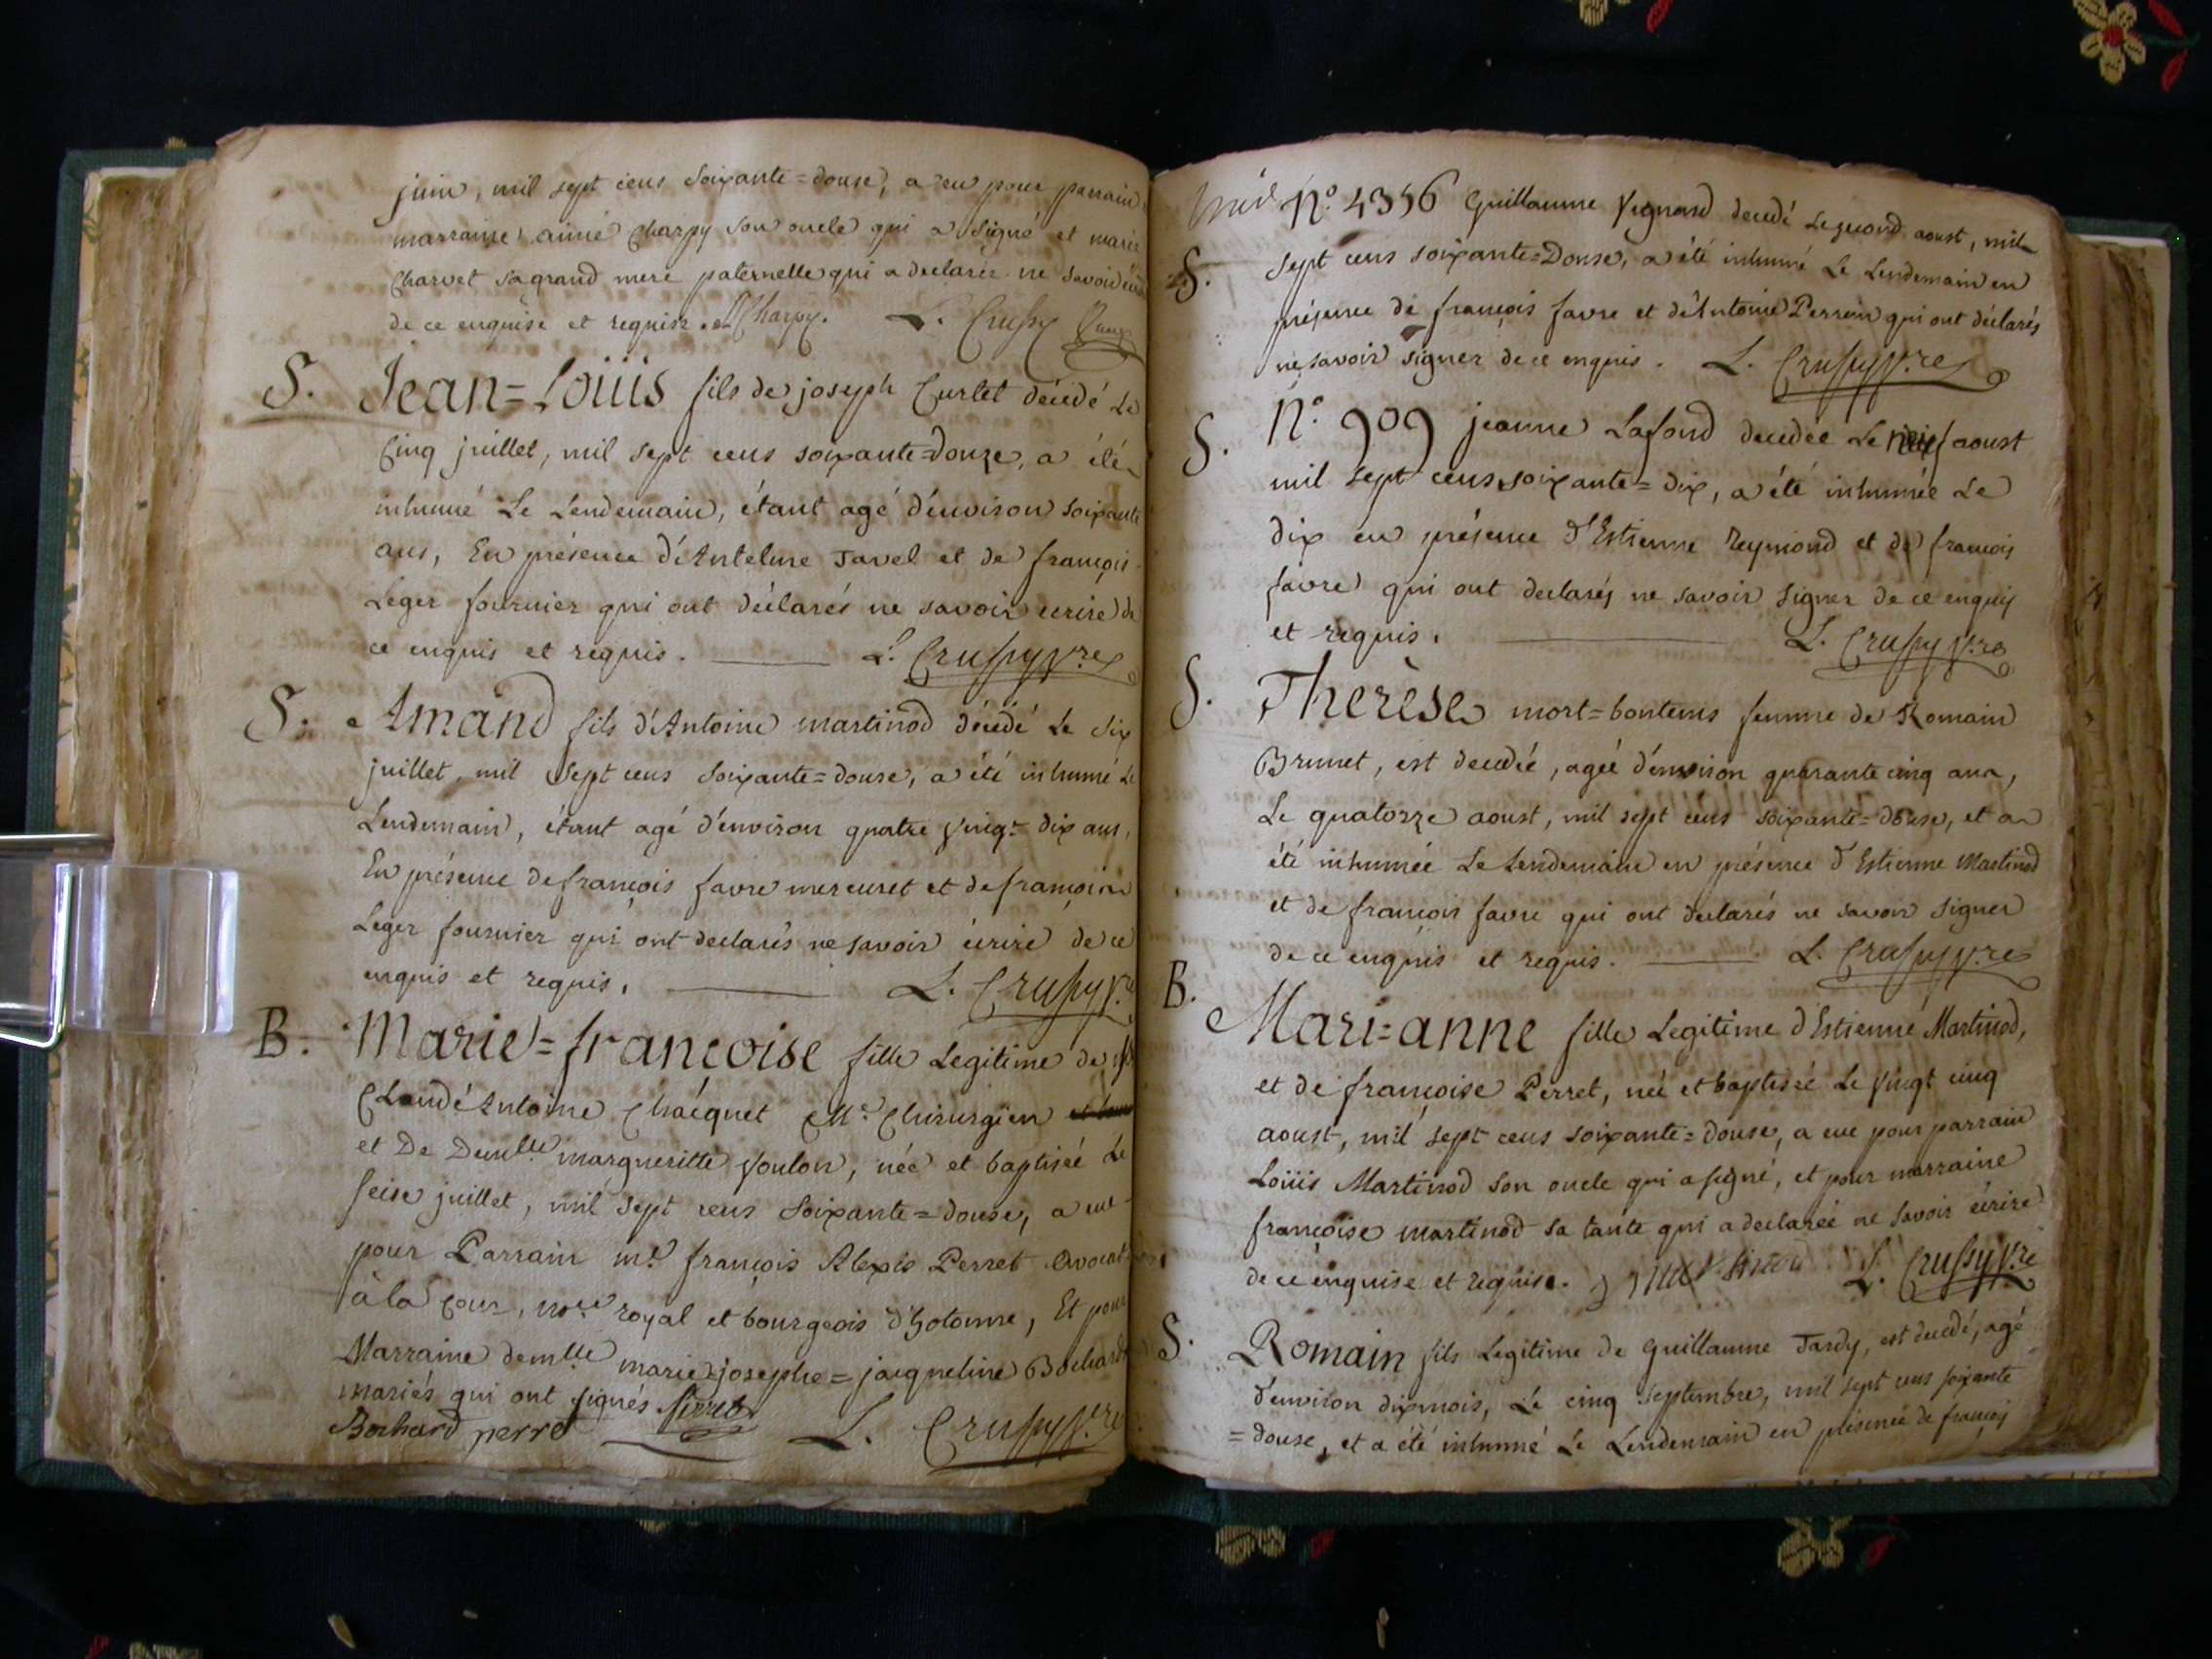 juin, mil sept cens soixante=douse, a eu pour parrain
marraine aimé Charpy son oncle qui a signé et marie
Charvet sa grand mere paternelle qui a declarée ne savoir
de ce enquise et requise. Charpy. L. Crussy
S. Jean=Loüis fils de joseph Curlet décédé Le
Cinq juillet, mil sept cens soixante=donze, a été
inhumé Le Lendemain, étant agé d'environ soixante
ans, En présence d'Antelme Tavel et de françois
Leger fournier qui ont déclarés ne savoir ecrire de
ce enquis et requis. L. Crussy V.re
S. Amand fils d'Antoine martinod décédé Le six
juillet, mil sept cens soixante=douse, a été inhumé Le
Lendemain, étant agé d'environ quatre vingt dix ans,
En présence de françois favre mercuret et de françois
Leger fournier qui ont declarés ne savoir écrire de ce
enquis et requis. L. Crussy V.re
B. Marie=françoise fille Legitime de
Claude Antoine Chacquet M.e Chirurgien
et De Dem.lle margueritte Voulon, née et baptisée Le
seise juillet, mil sept cens soixante=douse, a eue
pour Parrain m.e françois Alexis Perret Avocat
à la Cour, no.re royal et bourgeois d'hotonne, Et pour
Marraine dem.lle marie=josephe=jacqueline Bochard
mariés qui ont signés
Bochard perret L. Crussy V.re
N.o 4356 Guillaume Vignand decedé Le second aoust, mil
S. sept cens soixante=Douse, a été inhumé Le Lendemain en
présence de françois favre et d'Antoine Perrein qui ont déclarés
ne savoir signer de ce enquis. L. Crussy V.re
S. N.o 909 jeanne Lafond decedée Le neuf aoust
mil sept cens soixante=dix, a été inhumée Le
dix en présence d'Estienne Reymond et de françois
favre qui ont declarés ne savoir signer de ce enquis
et requis. L. Crussy V.re
S. Therèse mort=bontems femme de Romain
Brunet, est decedée, agée d'environ quarante cinq ans,
Le quatorze aoust, mil sept cens soixante=douse, et a
été inhumée Le Lendemain en présence d'Estienne Martinod
et de françois favre qui ont declarés ne savoir signer
de ce enquis et requis. L. Crussy V.re
B. Mari=anne fille Legitime d'Estienne Martinod,
et de françoise Perret, née et baptisée Le vingt cinq
aoust, mil sept cens soixante=douse, a eue pour parrain
Loüis Martinod son oncle qui a signé, et pour marraine
françoise martinod sa tante qui a declarée ne savoir écrire
de ce enquise et requise. L. Crussy V.re
S. Romain fils Legitime de Guillaume Tardy, est decedé, agé
d'environ dix mois, Le cinq septembre, mil sept cens soixante
=douse, et a été inhumé Le Lendemain en présence de françois